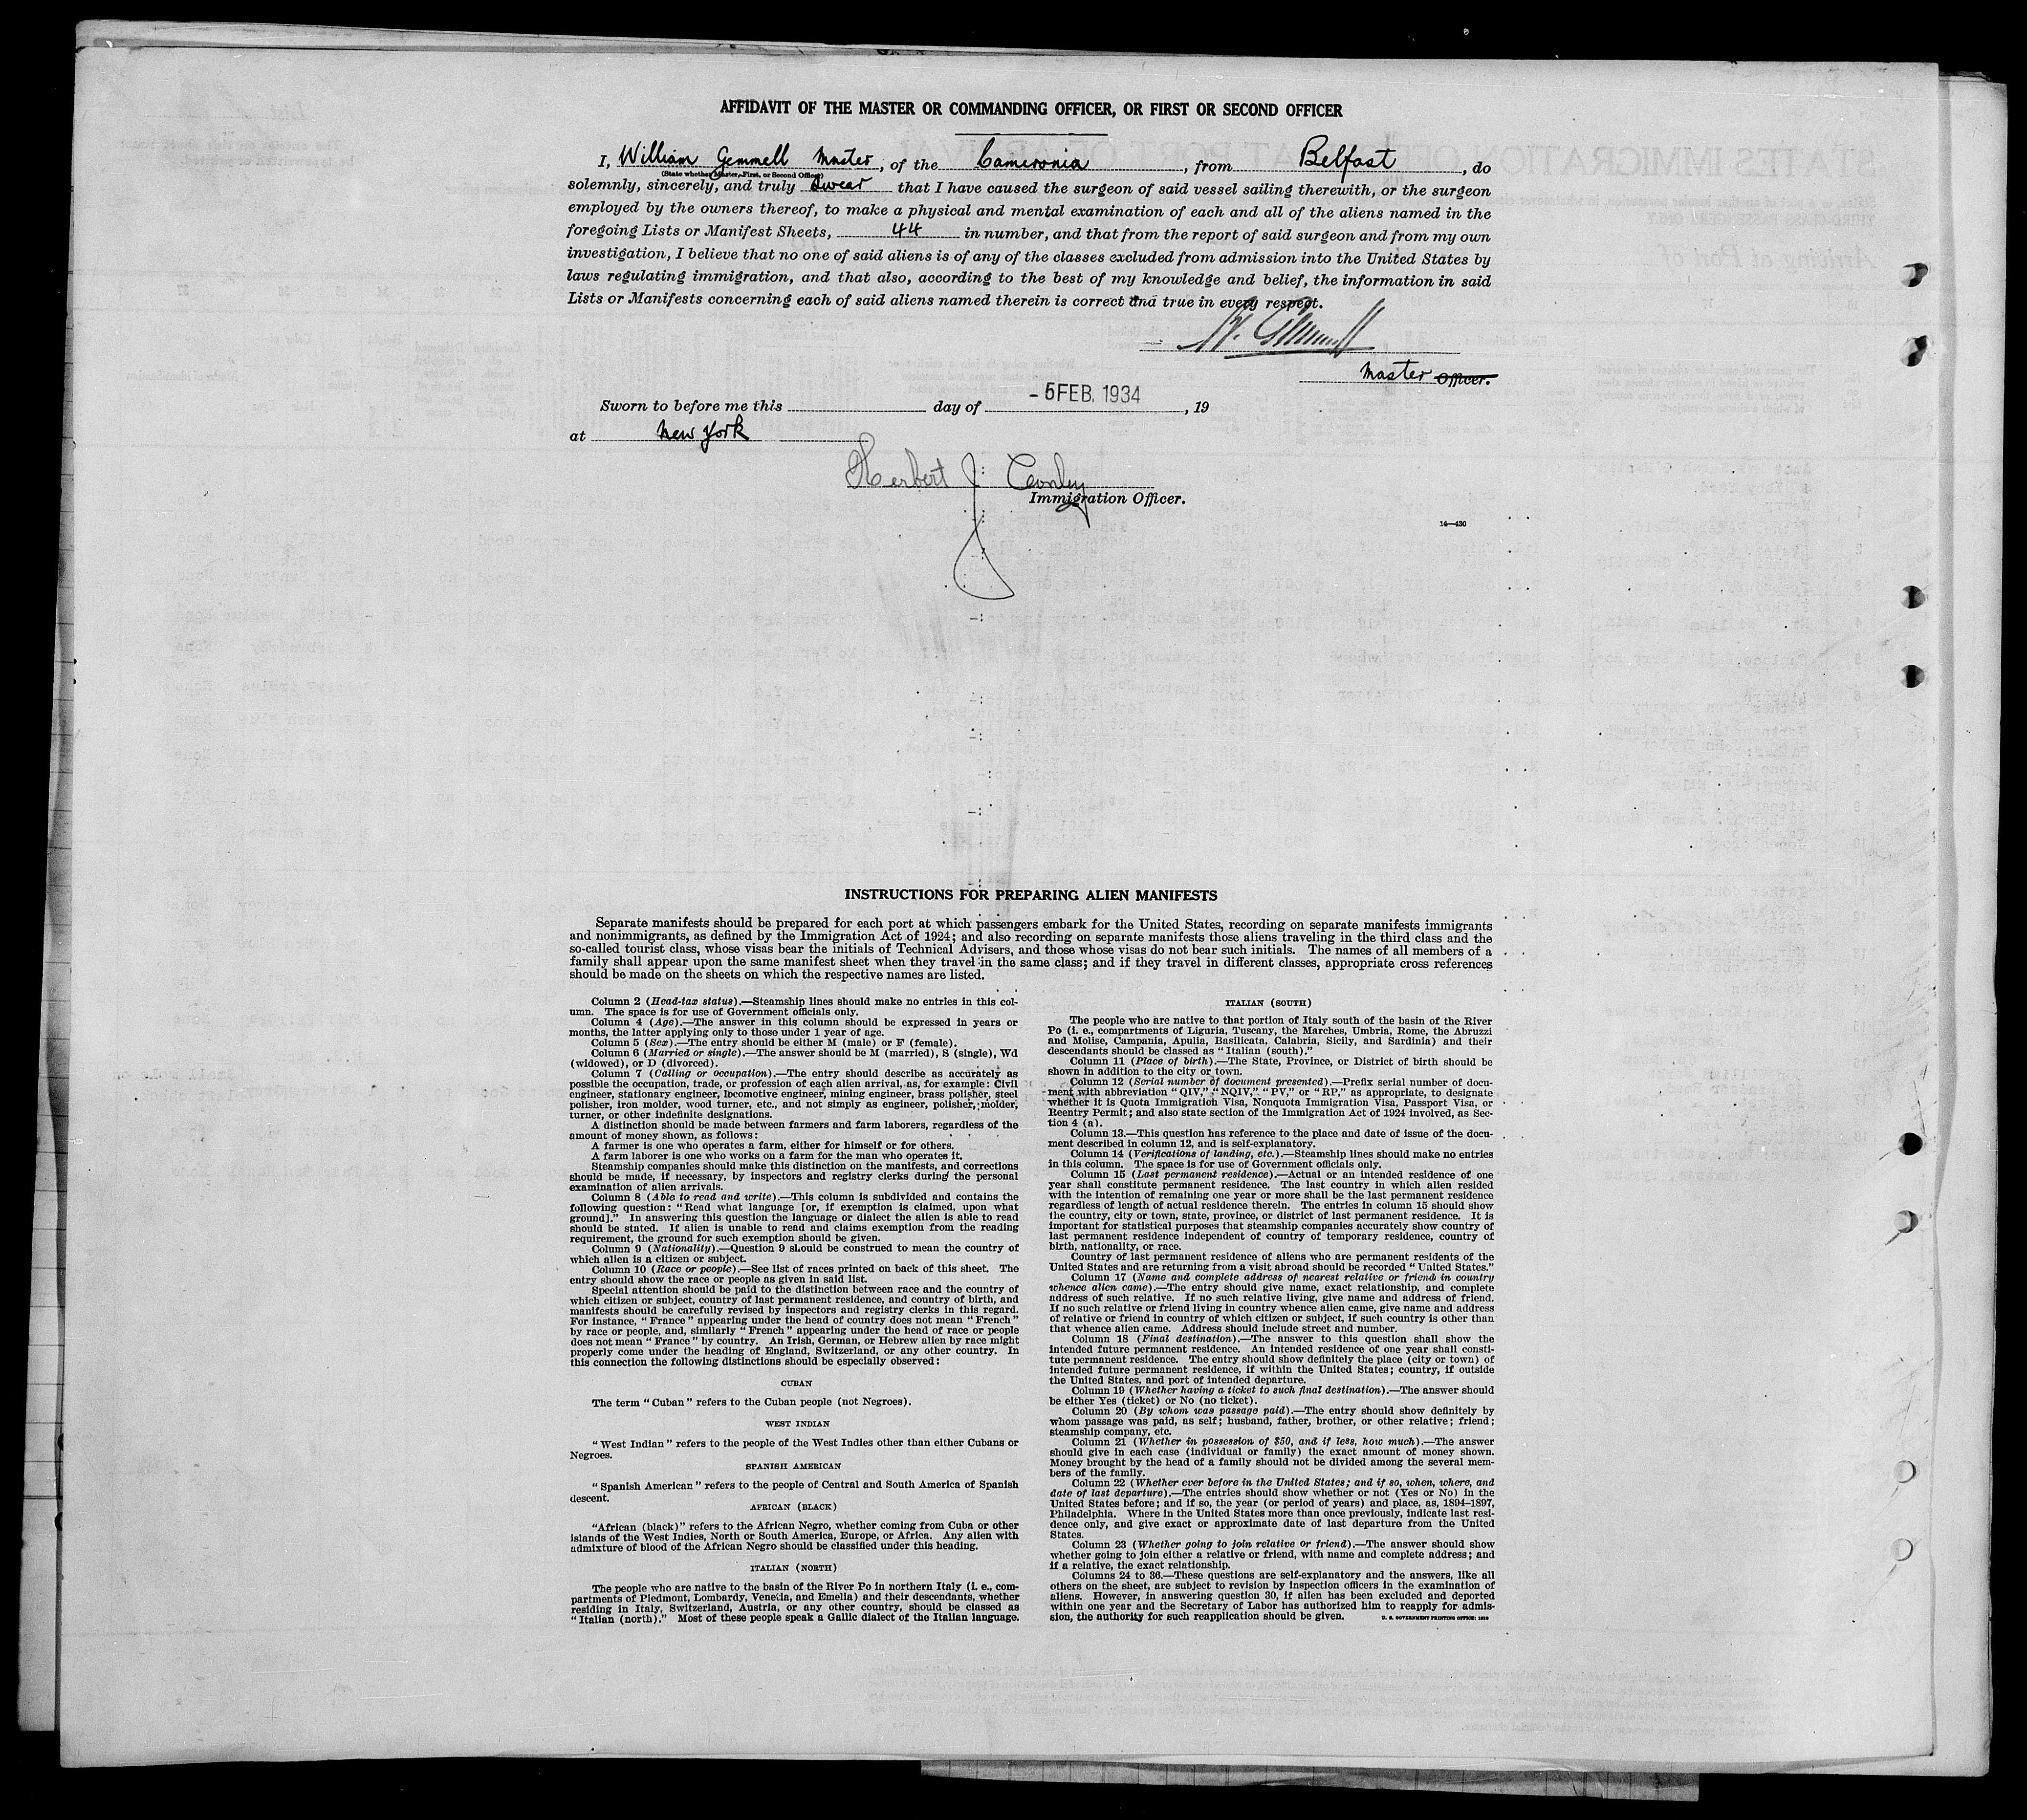 AFFIDAVIT OF THE MASTER OR COMMANDING OFFICER, OR FIRST OR SECOND OFFICER
I, William Gemmell Master, of the Cameronia, from Belfast, do
(State whether Master, First, or Second Officer)
solemnly, sincerely, and truly swear that I have caused the surgeon of said vessel sailing therewith, or the surgeon
employed by the owners thereof, to make a physical and mental examination of each and all of the aliens named in the
foregoing Lists or Manifest Sheets, 44 in number, and that from the report of said surgeon and from my own
investigation, I believe that no one of said aliens is of any of the classes excluded from admission into the United States by
laws regulating immigration, and that also, according to the best of my knowledge and belief, the information in said
Lists or Manifests concerning each of said aliens named therein is correct and true in every respect.
W. Gemmell
Master Officer.
Sworn to before me this day of - 5 FEB. 1934, 19
at New York
Herbert J. Conley
Immigration Officer.
14—430
INSTRUCTIONS FOR PREPARING ALIEN MANIFESTS
Separate manifests should be prepared for each port at which passengers embark for the United States, recording on separate manifests immigrants
and nonimmigrants, as defined by the Immigration Act of 1924; and also recording on separate manifests those aliens traveling in the third class and the
so-called tourist class, whose visas bear the initials of Technical Advisers, and those whose visas do not bear such initials. The names of all members of a
family shall appear upon the same manifest sheet when they travel in the same class; and if they travel in different classes, appropriate cross references
should be made on the sheets on which the respective names are listed.
Column 2 (Head-tax status).—Steamship lines should make no entries in this col-
umn. The space is for use of Government officials only.
Column 4 (Age).—The answer in this column should be expressed in years or
months, the latter applying only to those under 1 year of age.
Column 5 (Sex).—The entry should be either M (male) or F (female).
Column 6 (Married or single).—The answer should be M (married), S (single), Wd
(widowed), or D (divorced).
Column 7 (Calling or occupation).—The entry should describe as accurately as
possible the occupation, trade, or profession of each alien arrival, as, for example: Civil
engineer, stationary engineer, locomotive engineer, mining engineer, brass polisher, steel
polisher, iron molder, wood turner, etc., and not simply as engineer, polisher, molder,
turner, or other indefinite designations.
A distinction should be made between farmers and farm laborers, regardless of the
amount of money shown, as follows:
A farmer is one who operates a farm, either for himself or for others.
A farm laborer is one who works on a farm for the man who operates it.
Steamship companies should make this distinction on the manifests, and corrections
should be made, if necessary, by inspectors and registry clerks during the personal
examination of alien arrivals.
Column 8 (Able to read and write).—This column is subdivided and contains the
following question: "Read what language [or, if exemption is claimed, upon what
ground]." In answering this question the language or dialect the alien is able to read
should be stated. If alien is unable to read and claims exemption from the reading
requirement, the ground for such exemption should be given.
Column 9 (Nationality).—Question 9 should be construed to mean the country of
which alien is a citizen or subject.
Column 10 (Race or people).—See list of races printed on back of this sheet. The
entry should show the race or people as given in said list.
Special attention should be paid to the distinction between race and the country of
which citizen or subject, country of last permanent residence, and country of birth, and
manifests should be carefully revised by inspectors and registry clerks in this regard.
For instance, "France" appearing under the head of country does not mean "French"
by race or people, and, similarly "French" appearing under the head of race or people
does not mean "France" by country. An Irish, German, or Hebrew alien by race might
properly come under the heading of England, Switzerland, or any other country. In
this connection the following distinctions should be especially observed:
CUBAN
The term "Cuban" refers to the Cuban people (not Negroes).
WEST INDIAN
"West Indian" refers to the people of the West Indies other than either Cubans or
Negroes.
SPANISH AMERICAN
"Spanish American" refers to the people of Central and South America of Spanish
descent.
AFRICAN (BLACK)
"African (black)" refers to the African Negro, whether coming from Cuba or other
islands of the West Indies, North or South America, Europe, or Africa. Any alien with
admixture of blood of the African Negro should be classified under this heading.
ITALIAN (NORTH)
The people who are native to the basin of the River Po in northern Italy (i. e., com-
partments of Piedmont, Lombardy, Venetia, and Emelia) and their descendants, whether
residing in Italy, Switzerland, Austria, or any other country, should be classed as
"Italian (north)." Most of these people speak a Gallic dialect of the Italian language.
ITALIAN (SOUTH)
The people who are native to that portion of Italy south of the basin of the River
Po (i. e., compartments of Liguria, Tuscany, the Marches, Umbria, Rome, the Abruzzi
and Molise, Campania, Apulia, Basilicata, Calabria, Sicily, and Sardinia) and their
descendants should be classed as "Italian (south)."
Column 11 (Place of birth).—The State, Province, or District of birth should be
shown in addition to the city or town.
Column 12 (Serial number of document presented).—Prefix serial number of docu-
ment with abbreviation "QIV," "NQIV," "PV," or "RP," as appropriate, to designate
whether it is Quota Immigration Visa, Nonquota Immigration Visa, Passport Visa, or
Reentry Permit; and also state section of the Immigration Act of 1924 involved, as Sec-
tion 4 (a).
Column 13.—This question has reference to the place and date of issue of the docu-
ment described in column 12, and is self-explanatory.
Column 14 (Verifications of landing, etc.).—Steamship lines should make no entries
in this column. The space is for use of Government officials only.
Column 15 (Last permanent residence).—Actual or an intended residence of one
year shall constitute permanent residence. The last country in which alien resided
with the intention of remaining one year or more shall be the last permanent residence
regardless of length of actual residence therein. The entries in column 15 should show
the country, city or town, state, province, or district of last permanent residence. It is
important for statistical purposes that steamship companies accurately show country of
last permanent residence independent of country of temporary residence, country of
birth, nationality, or race.
Country of last permanent residence of aliens who are permanent residents of the
United States and are returning from a visit abroad should be recorded "United States."
Column 17 (Name and complete address of nearest relative or friend in country
whence alien came).—The entry should give name, exact relationship, and complete
address of such relative. If no such relative living, give name and address of friend.
If no such relative or friend living in country whence alien came, give name and address
of relative or friend in country of which citizen or subject, if such country is other than
that whence alien came. Address should include street and number.
Column 18 (Final destination).—The answer to this question shall show the
intended future permanent residence. An intended residence of one year shall consti-
tute permanent residence. The entry should show definitely the place (city or town) of
intended future permanent residence, if within the United States; country, if outside
the United States, and port of intended departure.
Column 19 (Whether having a ticket to such final destination).—The answer should
be either Yes (ticket) or No (no ticket).
Column 20 (By whom was passage paid).—The entry should show definitely by
whom passage was paid, as self; husband, father, brother, or other relative; friend;
steamship company, etc.
Column 21 (Whether in possession of $50, and if less, how much).—The answer
should give in each case (individual or family) the exact amount of money shown.
Money brought by the head of a family should not be divided among the several mem-
bers of the family.
Column 22 (Whether ever before in the United States; and if so, when, where, and
date of last departure).—The entries should show whether or not (Yes or No) in the
United States before; and if so, the year (or period of years) and place, as, 1894-1897,
Philadelphia. Where in the United States more than once previously, indicate last resi-
dence only, and give exact or approximate date of last departure from the United
States.
Column 23 (Whether going to join relative or friend).—The answer should show
whether going to join either a relative or friend, with name and complete address; and
if a relative, the exact relationship.
Columns 24 to 36.—These questions are self-explanatory and the answers, like all
others on the sheet, are subject to revision by inspection officers in the examination of
aliens. However, in answering question 30, if alien has been excluded and deported
within one year and the Secretary of Labor has authorized him to reapply for admis-
sion, the authority for such reapplication should be given.
U. S. GOVERNMENT PRINTING OFFICE: